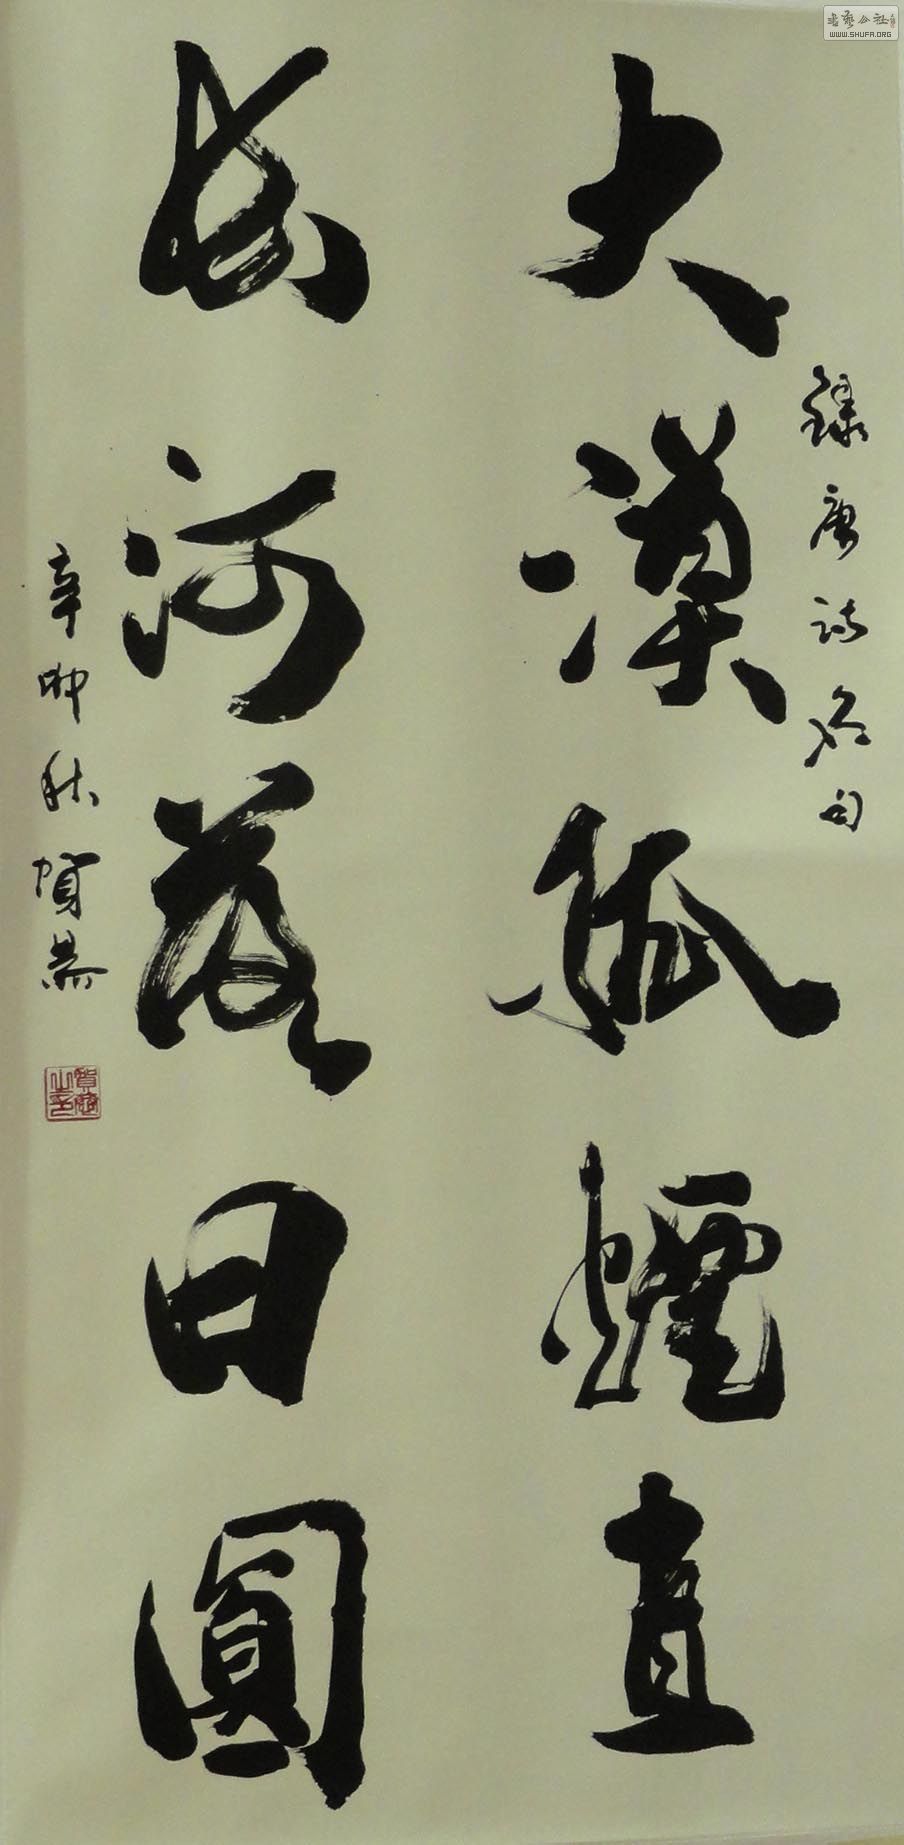 大漠孤煙直
長河落日圓
錄唐詩名句
辛卯秋賀
書藝公社
WWW.SHUFA.ORG